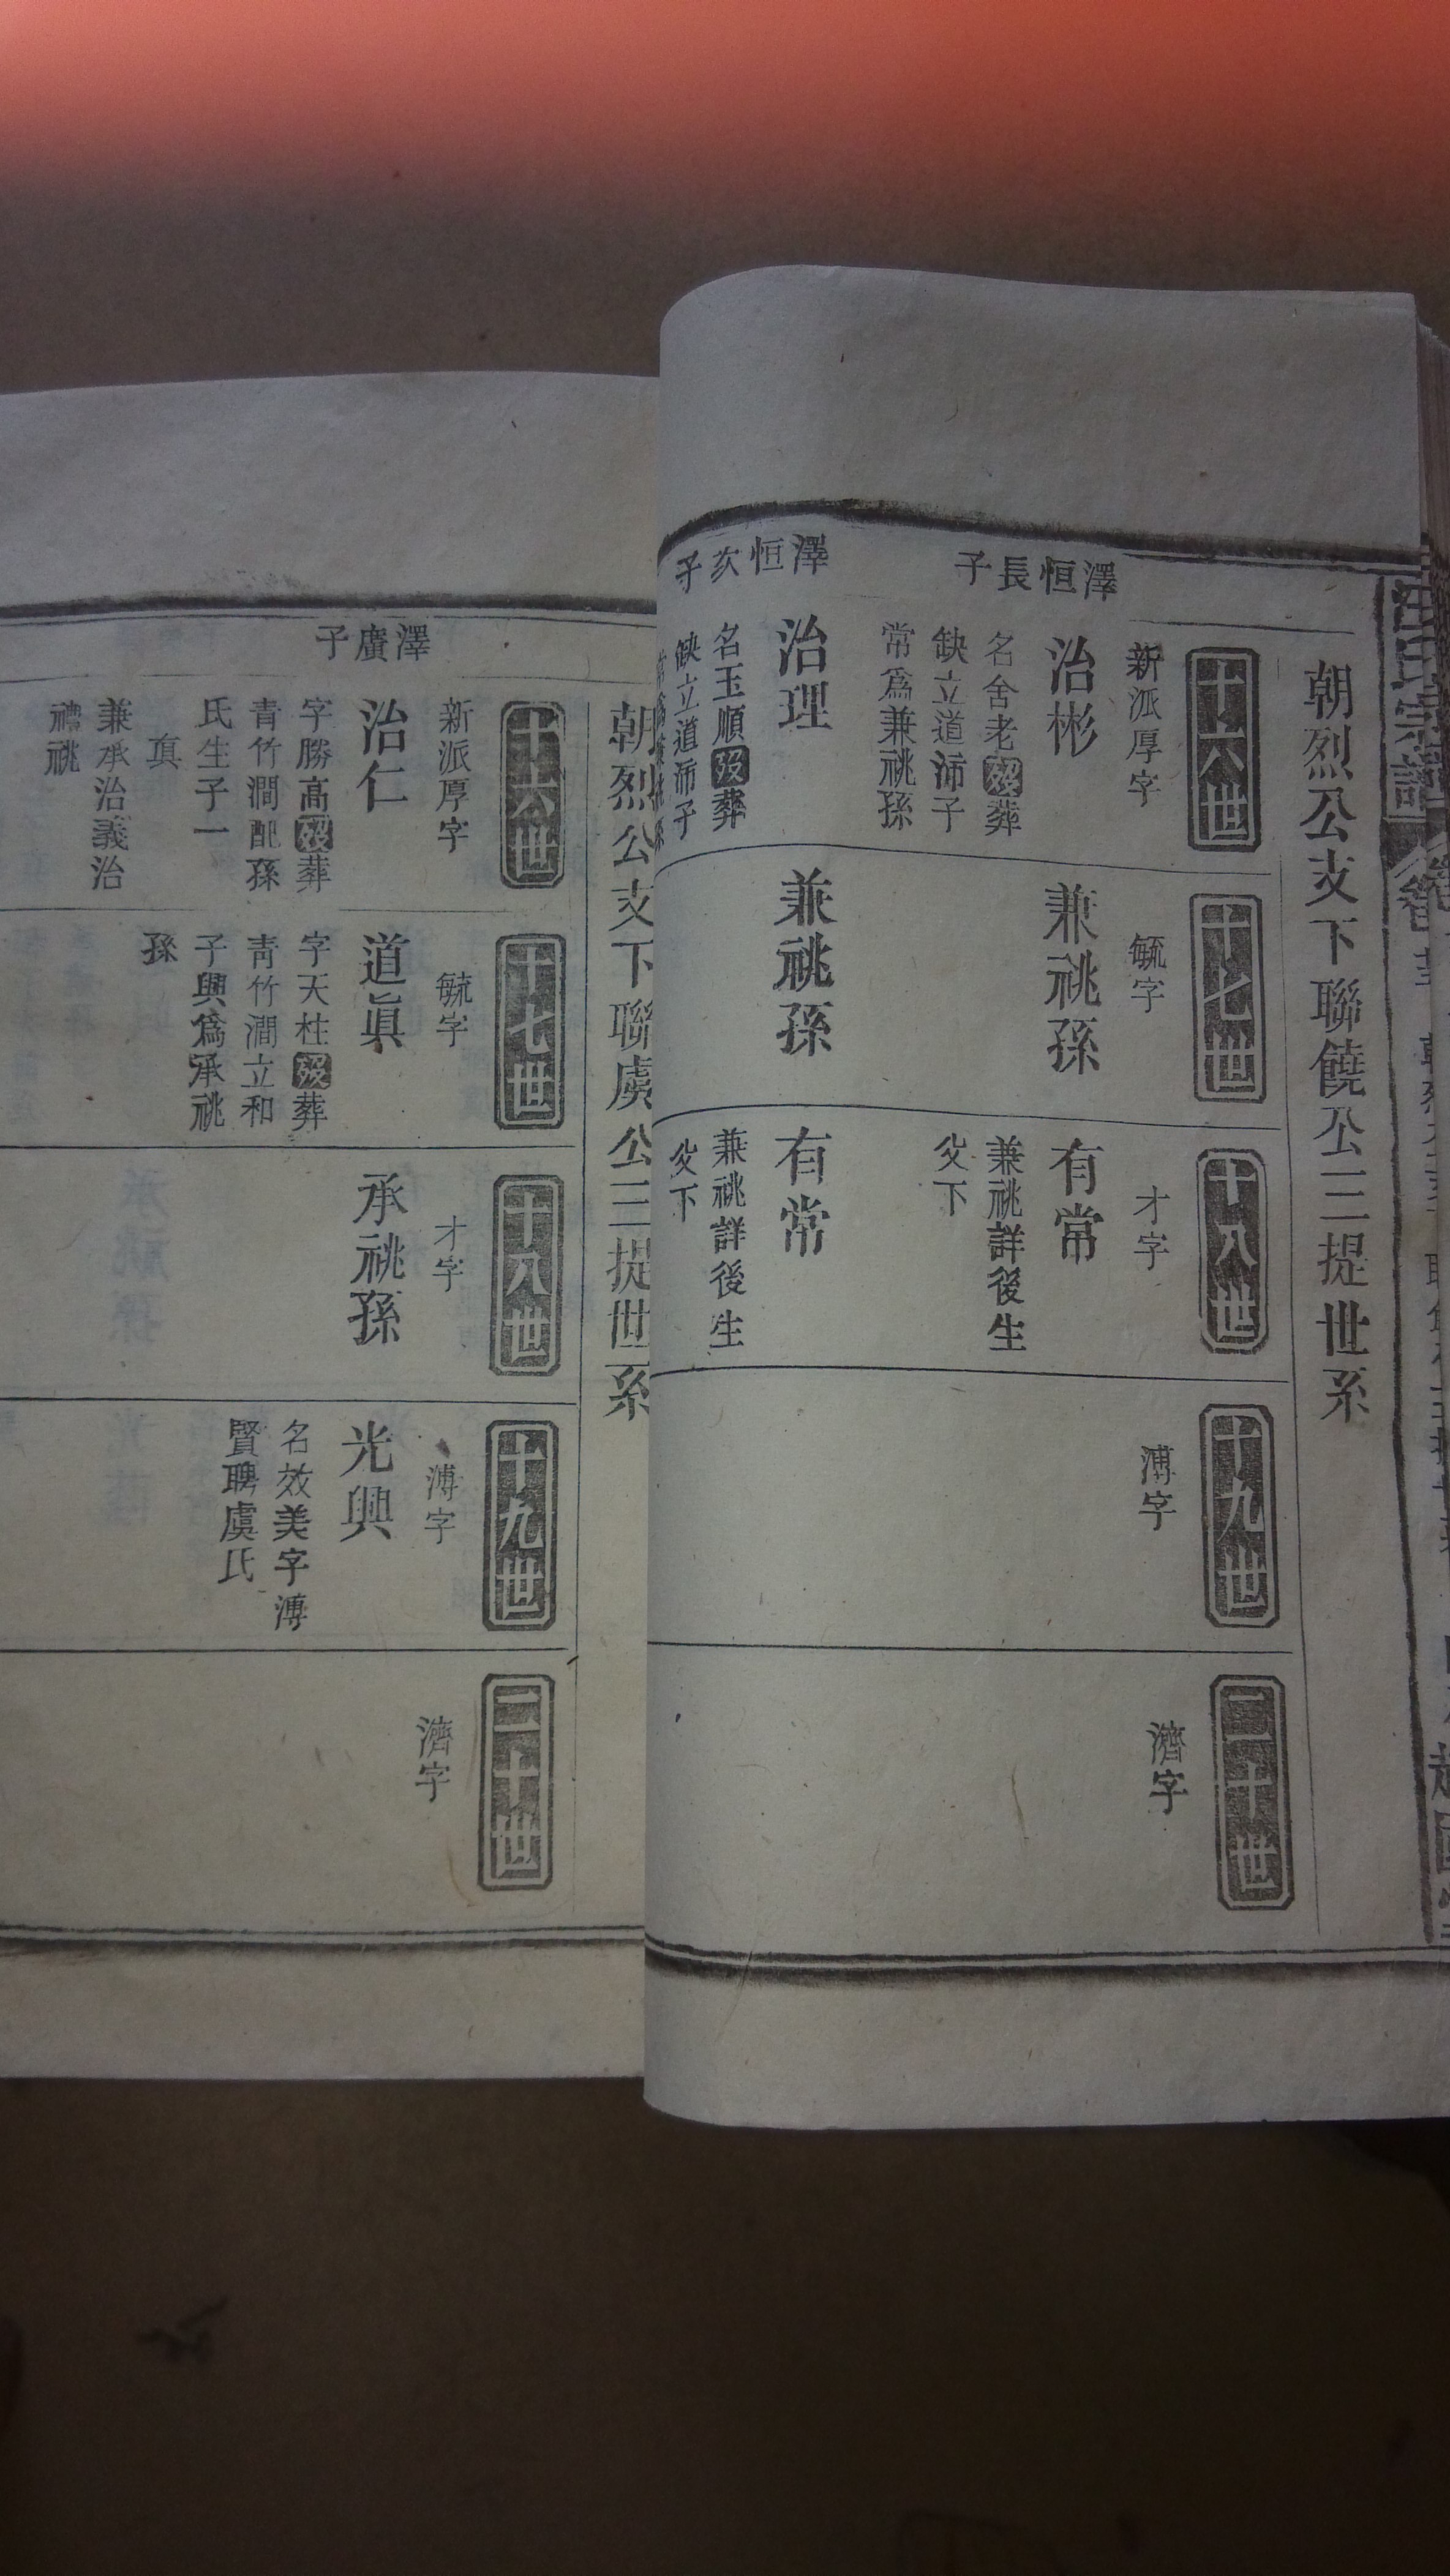 汪氏宗譜
朝烈公支下聯饒公三提世系
十六世
新派厚字
澤恒長子
治彬
名舍老歿葬
缺立道沛子
常爲兼祧孫
澤恒次子
治理
名玉順歿葬
缺立道沛子
常爲兼祧孫
十七世
毓字
兼祧孫
兼祧孫
十八世
才字
有常
兼祧詳後生
父下
有常
兼祧詳後生
父下
十九世
溥字
二十世
濟字
朝烈公支下聯虞公三提世系
十六世
新派厚字
澤廣子
治仁
字勝高歿葬
青竹澗配孫
氏生子一
眞
兼承治義治
禮祧
十七世
毓字
道眞
字天柱歿葬
青竹澗立和
子興爲承祧
孫
十八世
才字
承祧孫
十九世
溥字
光興
名效美字溥
賢聘虞氏
二十世
濟字